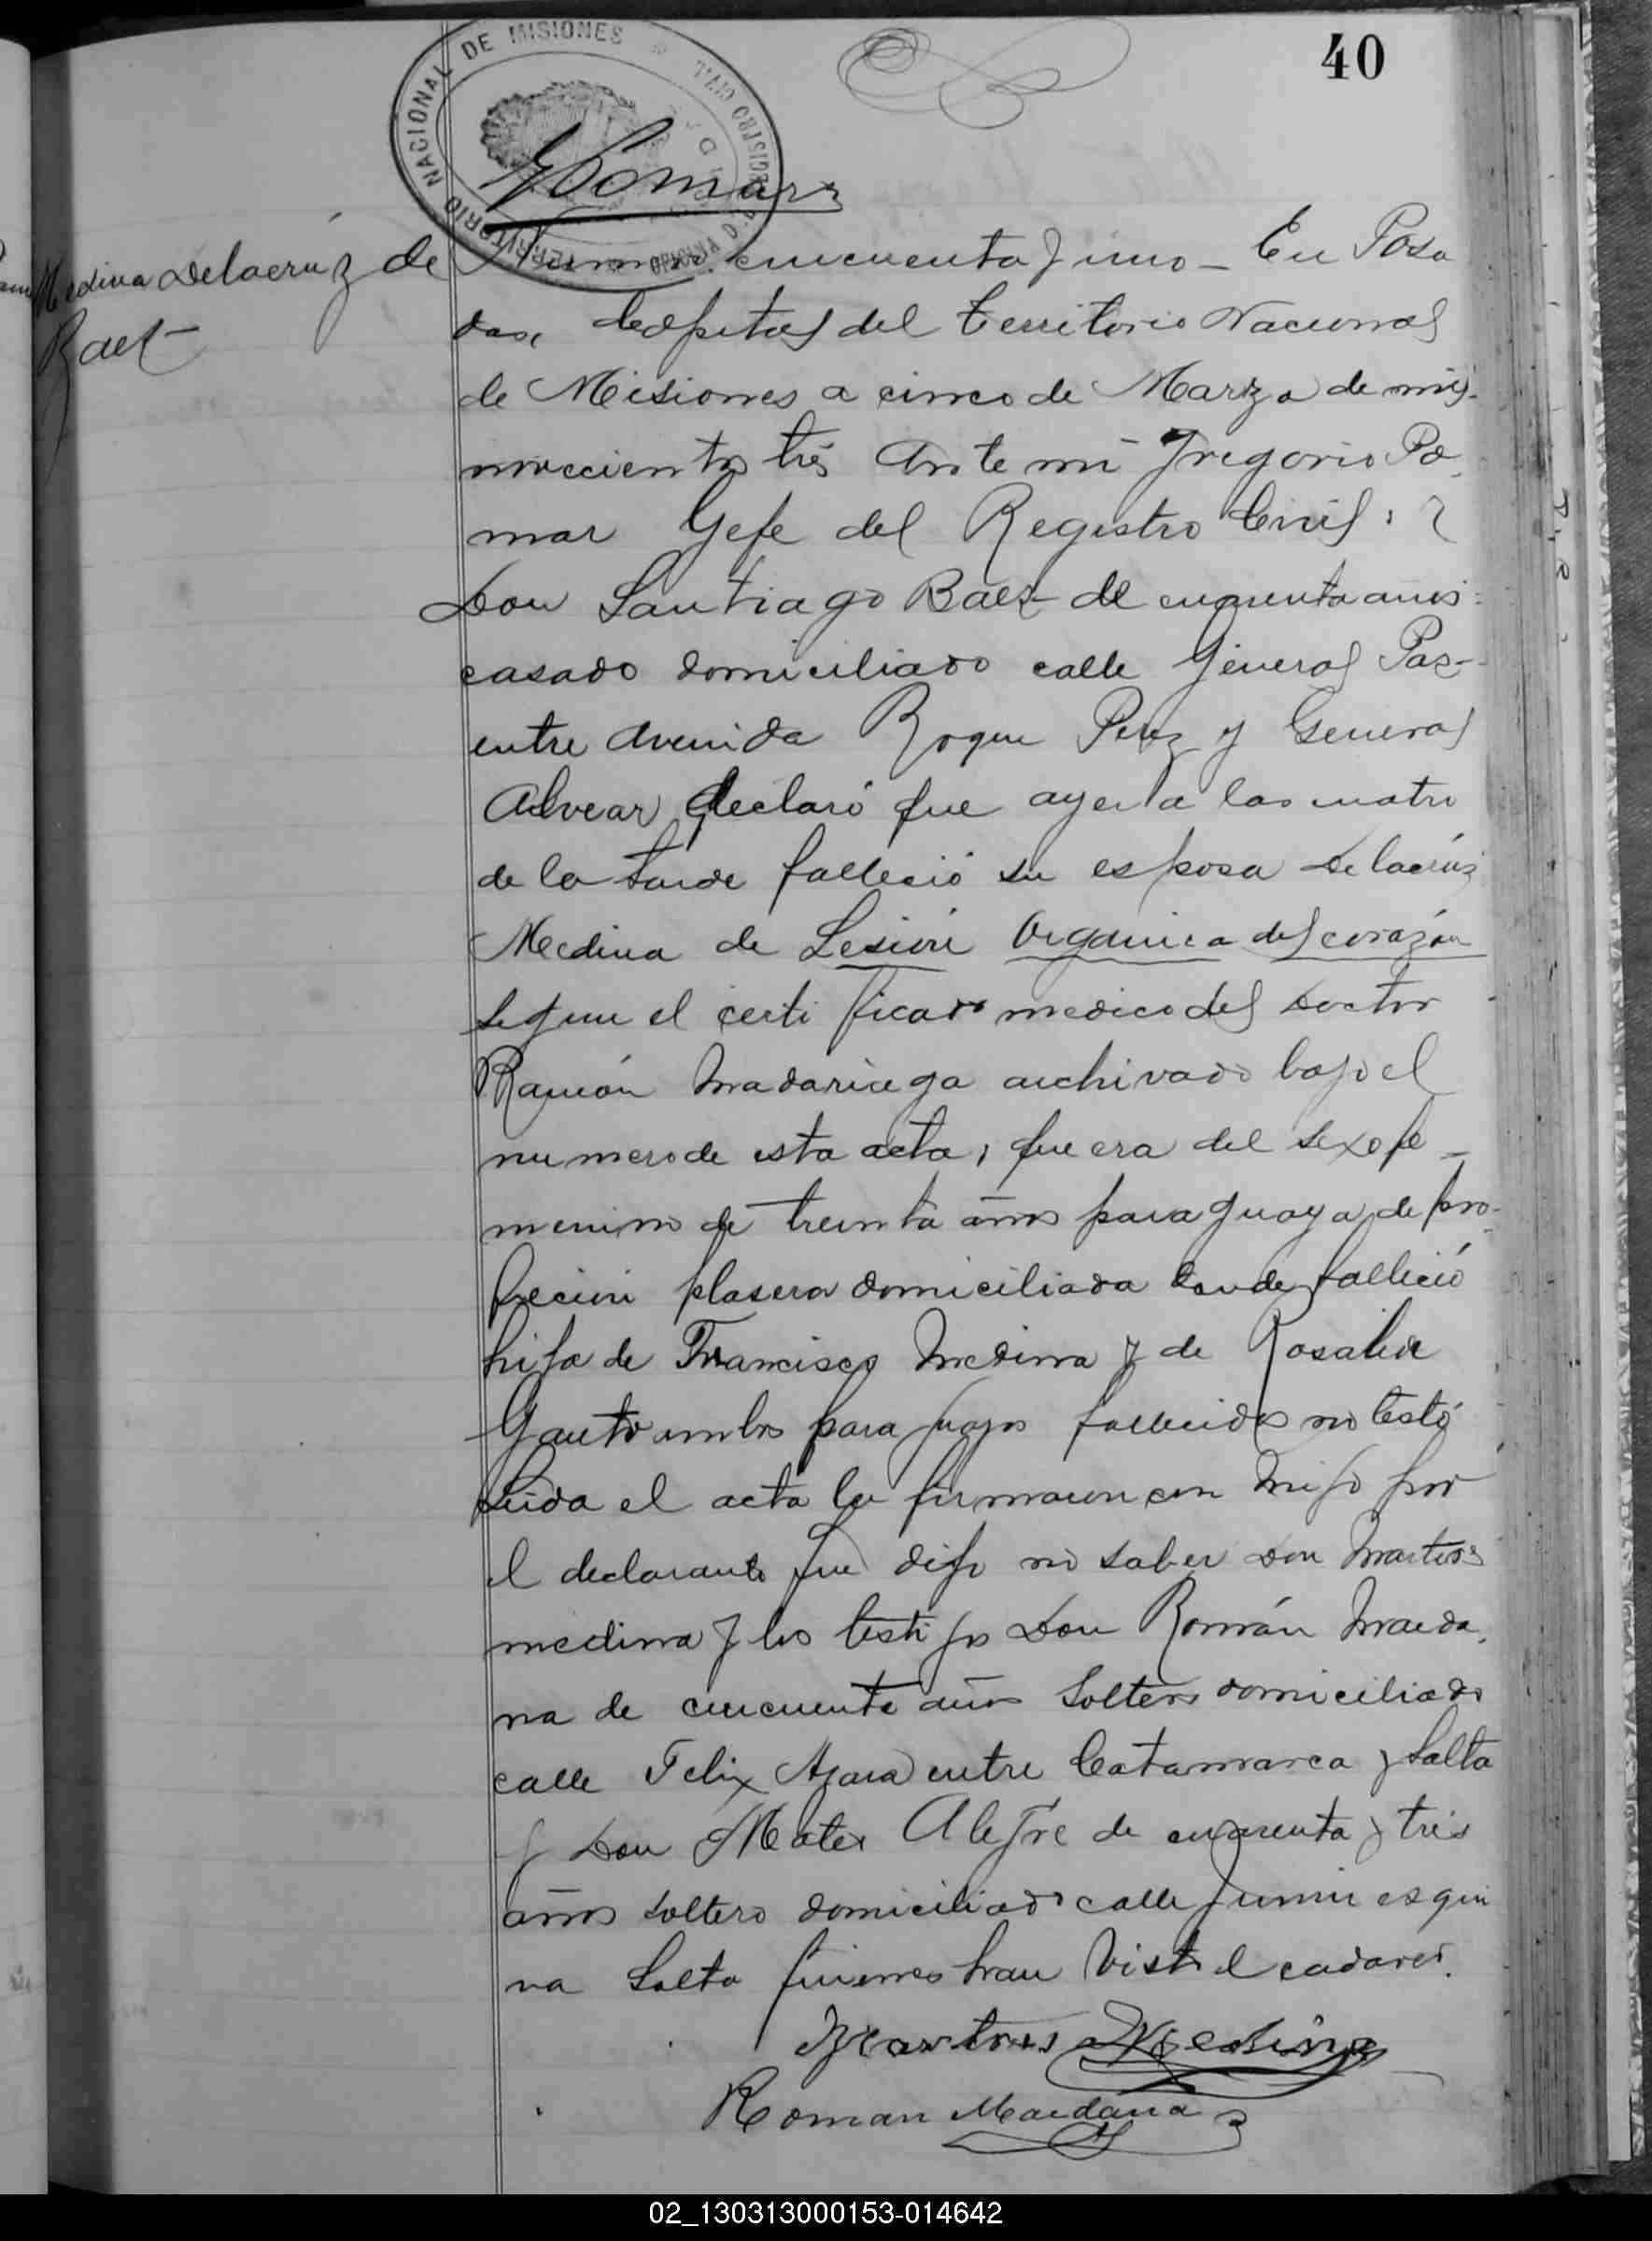 40
TERRITORIO NACIONAL DE MISIONES
REGISTRO CIVIL
GPomar
Medina Delacrúz de
Baez
Numero cincuenta y uno - En Posa
das, Capital del Territorio Nacional
de Misiones a cinco de Marzo de mil
novecientos trés Ante mi Gregorio Po
mar Gefe del Registro Civil:
Don Santiago Baez de cuarenta años
casado domiciliado calle General Paz
entre Avenida Roque Perez y General
Alvear declaró que ayer a las cuatro
de la tarde falleció su esposa Delacrúz
Medina de Lesión Organica del corazón
segun el certificado medico del Doctor
Ramón Madariaga archivado bajo el
numero de esta acta, que era del sexo fe
menino de treinta años paraguaya de pro-
fecion plasera domiciliada donde falleció
hija de Francisco Medina y de Rosalia
Gauto ambos paraguayos fallecidos no testó
Leida el acta la firmaron con migo por
el declarante que dijo no saber Don Martires
medina y los testigos Don Román Maida
na de cincuenta años soltero domiciliado
calle Felix Azara entre Catamarca y Salta
y Don Mateo Alegre de cuarenta y tres
años soltero domiciliado calle Junin esqui
na Salta quienes han visto el cadaver.
Martires Medina
Roman Maidana
02_130313000153-014642